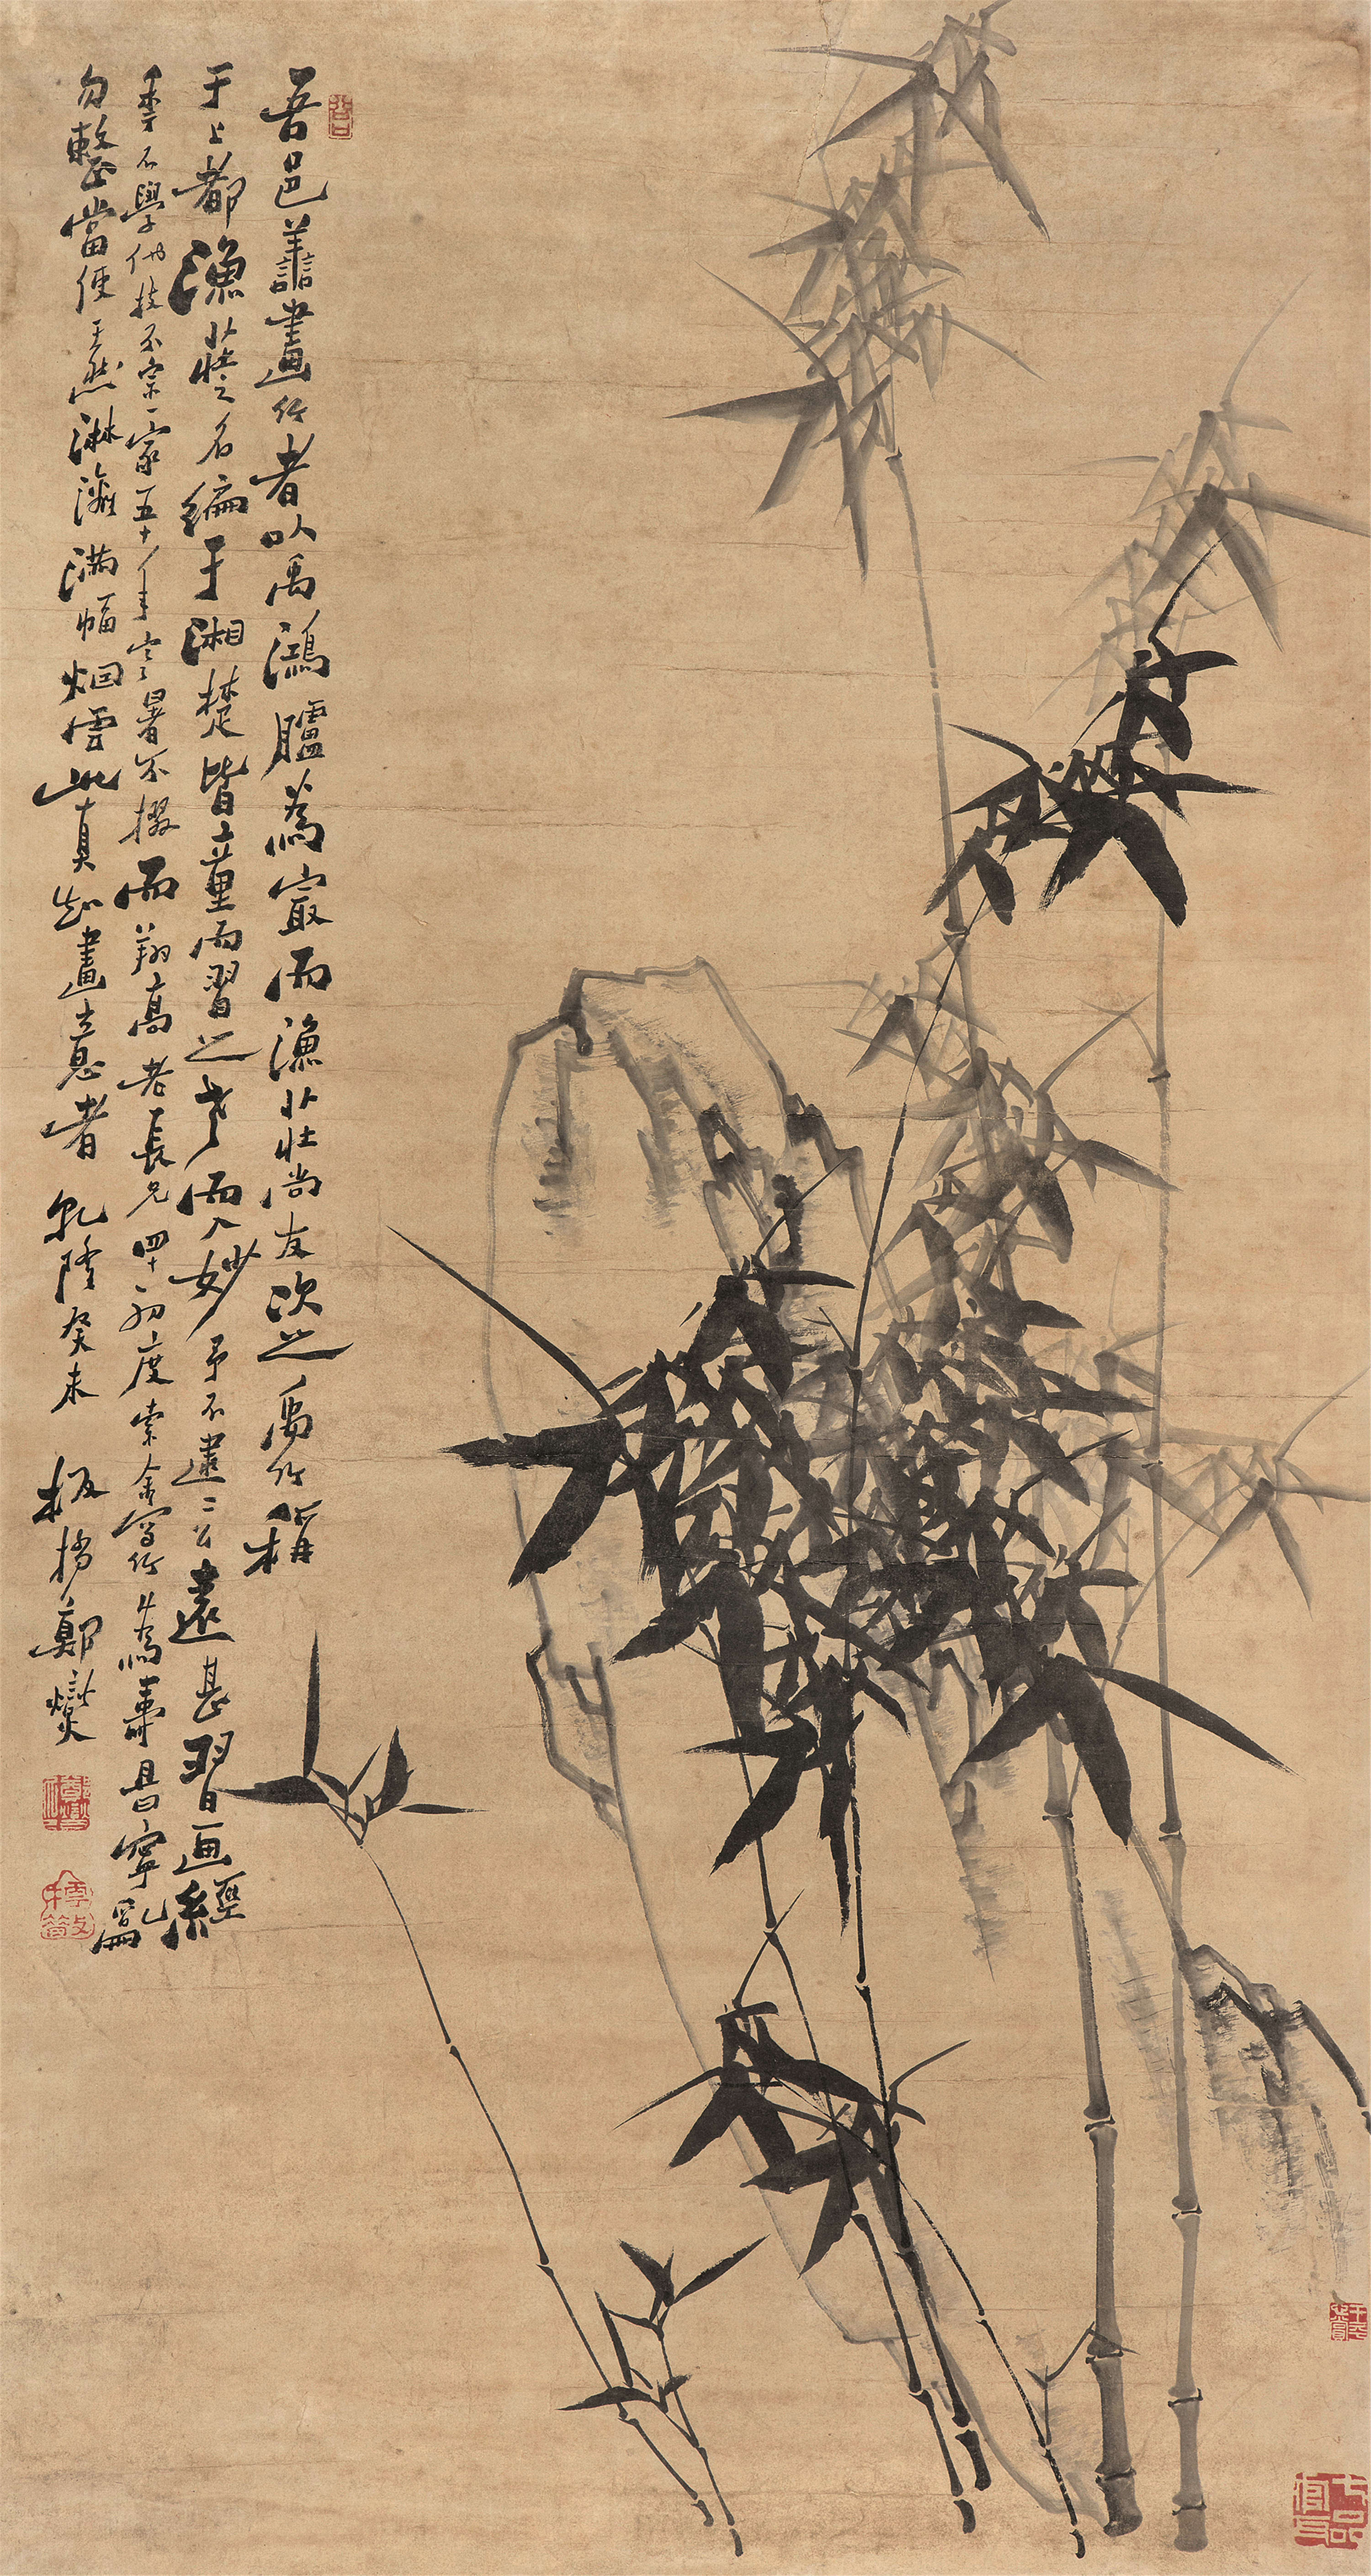 吾邑善畫竹者以禹鴻臚為冣而漁莊尚友次之禹竹稱
于上都漁莊之名編于湘楚皆童而習之老而入妙予不逮二公遠甚習画經
季不學他技不宗一家五十年寒暑不掇而翔高老長兄四十初度索余寫竹為壽昌寧
勿整當便天然淋漓滿幅烟雲此真知畫意者 乾隆癸未 板橋鄭燮
鄭燮
七品官耳